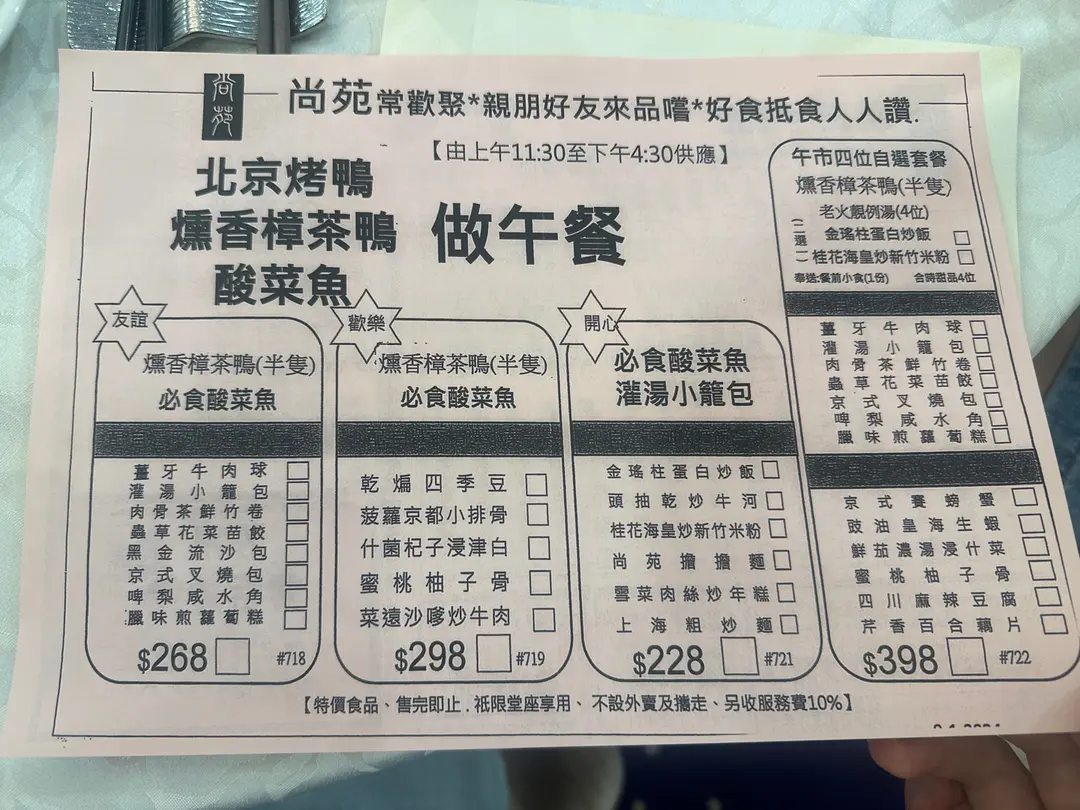 尚苑
尚苑常歡聚*親朋好友來品嚐*好食抵食人人讚.
【由上午11:30至下午4:30供應】
北京烤鴨
燻香樟茶鴨
酸菜魚
做午餐
友誼
燻香樟茶鴨(半隻)
必食酸菜魚
薑牙牛肉球
灌湯小籠包
肉骨茶鮮竹卷
蟲草花菜苗餃
黑金流沙包
京式叉燒包
啤梨咸水角
臘味煎蘿蔔糕
$268
#718
歡樂
燻香樟茶鴨(半隻)
必食酸菜魚
乾煸四季豆
菠蘿京都小排骨
什菌杞子浸津白
蜜桃柚子骨
菜遠沙嗲炒牛肉
$298
#719
開心
必食酸菜魚
灌湯小籠包
金瑤柱蛋白炒飯
頭抽乾炒牛河
桂花海皇炒新竹米粉
尚苑擔擔麵
雪菜肉絲炒年糕
上海粗炒麵
$228
#721
午市四位自選套餐
燻香樟茶鴨(半隻)
老火靚例湯(4位)
(二選一)
金瑤柱蛋白炒飯
桂花海皇炒新竹米粉
奉送:餐前小食(1份) 合時甜品4位
薑牙牛肉球
灌湯小籠包
肉骨茶鮮竹卷
蟲草花菜苗餃
京式叉燒包
啤梨咸水角
臘味煎蘿蔔糕
京式賽螃蟹
豉油皇海生蝦
鮮茄濃湯浸什菜
蜜桃柚子骨
四川麻辣豆腐
芹香百合藕片
$398
#722
【特價食品、售完即止．祇限堂座享用、不設外賣及攜走、另收服務費10%】